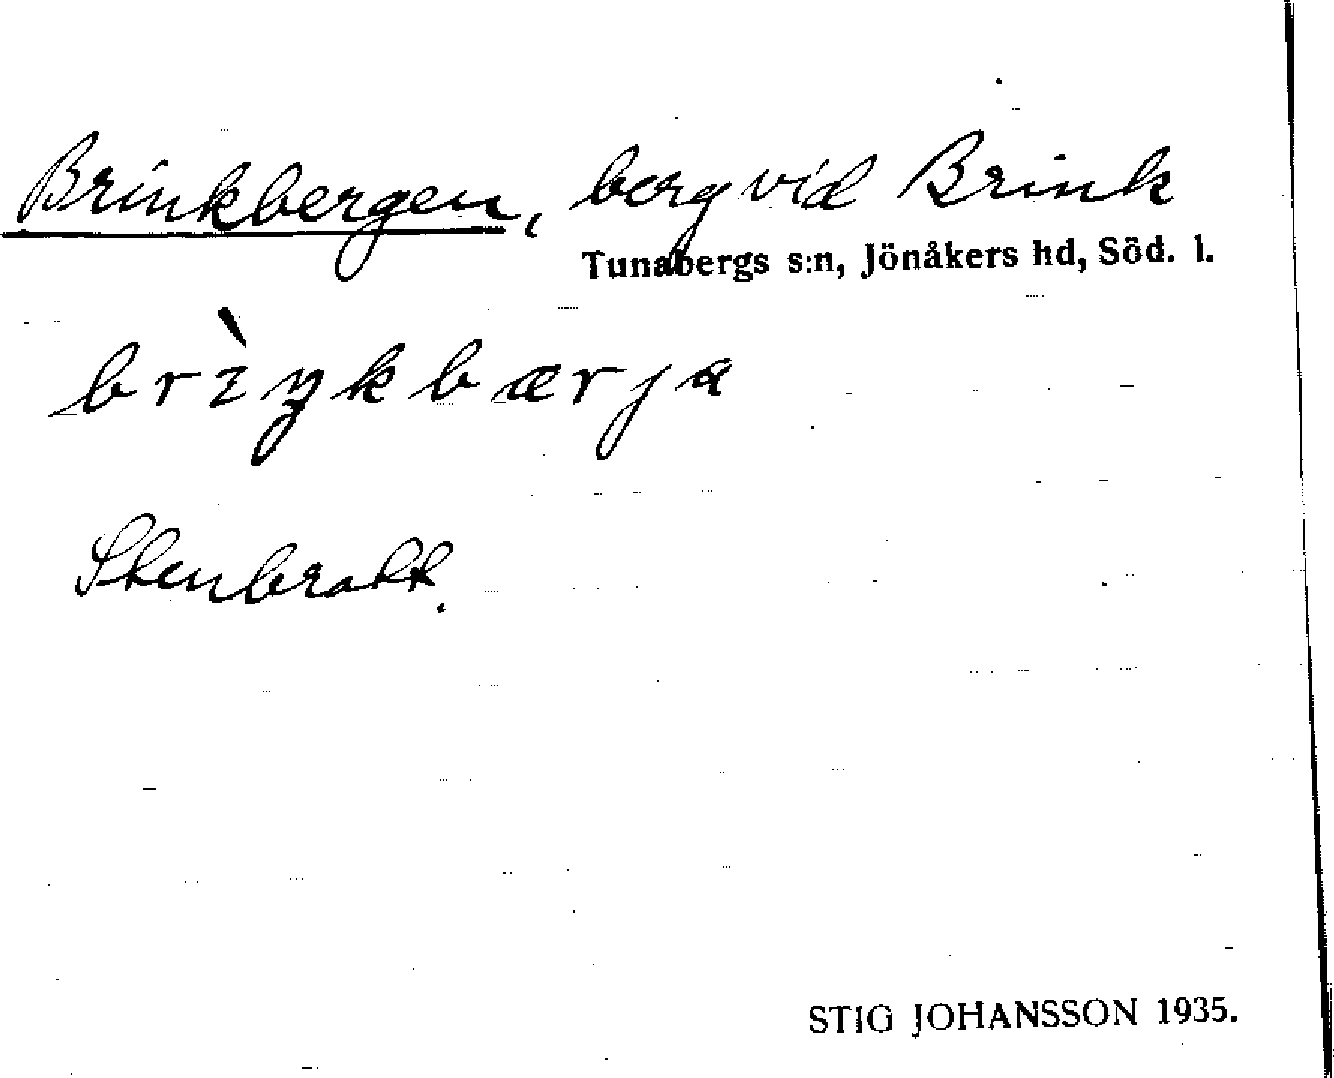 Brinkbergen, berg vid Brink
Tunabergs s:n, Jönåkers hd, Söd. l.
brìŋkbærja
Stenbrott.
STIG JOHANSSON 1935.